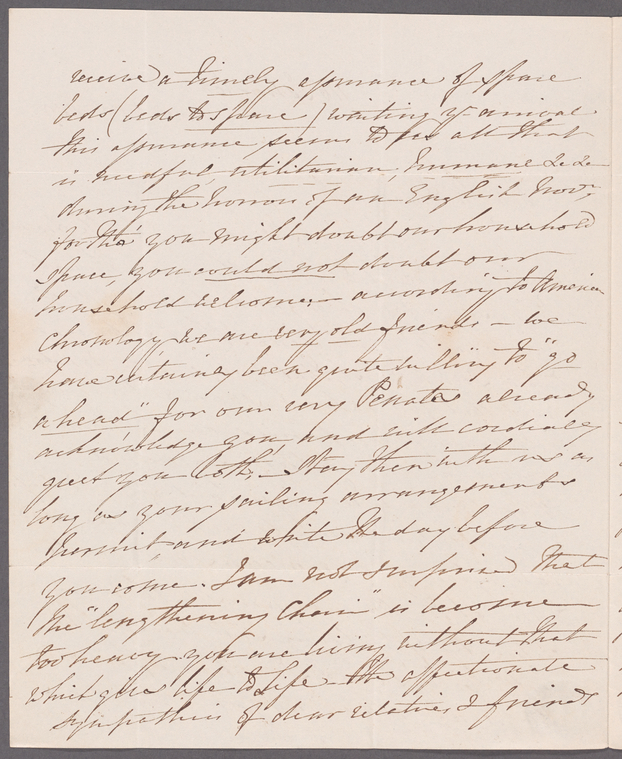 receive a timely assurance of spare
beds (beds to spare) waiting yr arrival
this assurance seems to be all that
is needful, utilitarian, humane &c &c
during the horrors of an English Novr,
for tho' you might doubt our household
space, you could not doubt our
household welcome; - according to American
chronology we are very old friends - we
have certainly been quite willing to "go
ahead" for our very Penates already
acknowledge you and will cordially
greet you both. - Stay then with us as
long as your sailing arrangements
permit, and write the day before
you come. I am not surprised that
the "lengthening chain" is become
too heavy. you are living without that
which give life to Life the affectionate
sympathies of dear relatives & friends